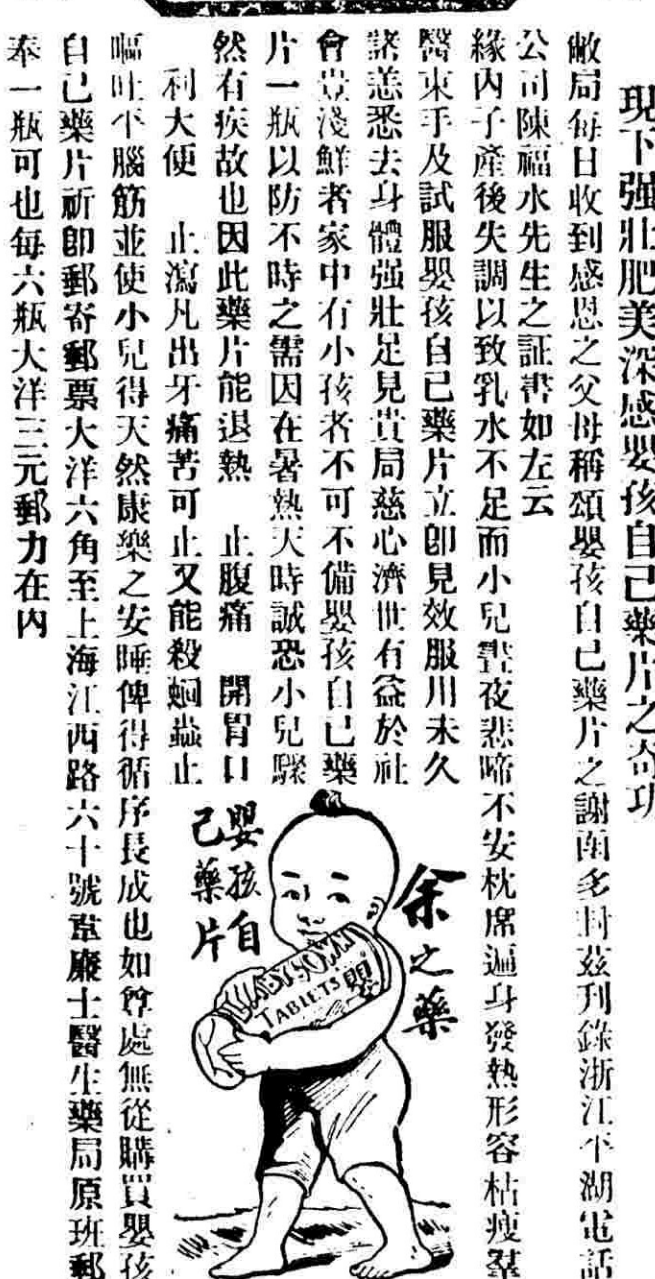 現下强壯肥美深感嬰孩自己藥片之奇功
敝局每日收到感恩之父母稱頌嬰孩自己藥片之謝函多封茲刋錄浙江平湖電話
公司陳福水先生之証書如左云
緣內子產後失調以致乳水不足而小兒晝夜悲啼不安枕席遍身發熱形容枯瘦羣
醫束手及試服嬰孩自己藥片立卽見效服用未久
諸恙悉去身體强壯足見貴局慈心濟世有益於社
會豈淺鮮者家中有小孩者不可不備嬰孩自己藥
片一瓶以防不時之需因在暑熱天時誠恐小兒驟
然有疾故也因此藥片能退熱 止腹痛 開胃口
利大便 止瀉凡出牙痛苦可止又能殺蛔蟲止
嘔吐平腦筋並使小兒得天然康樂之安睡俾得循序長成也如尊處無從購買嬰孩
自己藥片祈卽郵寄郵票大洋六角至上海江西路六十號韋廉士醫生藥局原班郵
奉一瓶可也每六瓶大洋三元郵力在內
余之藥
嬰孩自
己藥片
BABY'S OWN
TABLETS